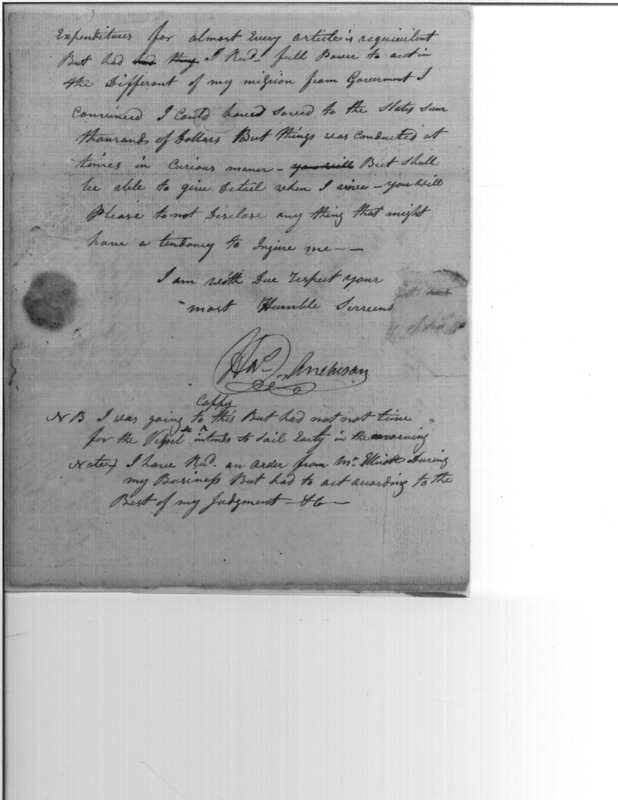 Expenditures for almost Every article is requivilent
But had and they I Recd. full Power to act in
the Different of my mission from Goverment I
Convinced I Could haved saved to the States sum
thousands of Dollars But things was conducted at
times in Curious maner - you will But shall
be able to give Detail when I arive - you will
Please to not Disclose any thing that might
have a tendency to Injure me --
I am with Due respect your
most Humble Servent
Anchison
Coppy
NB I was going to ^ this But had not not time
for the Vessel intends to Sail Early in the morning
Note I have Recd. an order from Mr. During
my Business But had to act according to the
Best of my Judgment - &c -